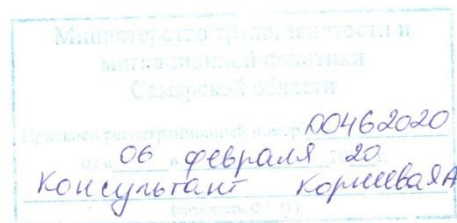 Министерство труда, занятости и
миграционной политики
Самарской области
Присвоен регистрационный номер 00462020
от « 06 » февраля 2020
Консультант
(должность, Ф.И.О.)